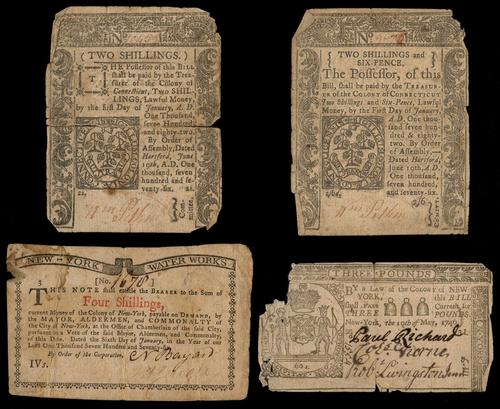 No
(TWO SHILLINGS.)
THE Possessor of this BILL
shall be paid by the Trea-
surer of the Colony of
Connecticut, TWO SHIL-
LINGS, Lawful Money,
by the first Day of
January, A. D.
One Thousand,
seven Hundred
and eighty-two.
By Order of
Assembly,
Dated
Hartford, June
19th, A.D. One
thousand, seven
hundred and se-
venty-six.
Com-
mittee.
No
TWO SHILLINGS and
SIX-PENCE.
The Possessor, of this
Bill, shall be paid by the TREASUR-
ER of the COLONY of CONNECTICUT
Two Shillings and Six-Pence, Lawful
Money, by the First Day of January,
A.D. One
thousand seven
hundred &
eighty-two. By
Order of
Assembly,
Dated Hartford,
June 19th, A.D.
One thousand,
seven hundred,
and seventy-six.
2/6.
NEW-YORK WATER WORKS
No. 1678
THIS NOTE shall entitle the BEARER to the Sum of
Four Shillings,
current Money of the Colony of New-York, payable on DEMAND, by
the MAYOR, ALDERMEN, and COMMONALTY of
the City of New-York, at the Office of Chamberlain of the said City,
pursuant to a Vote of the said Mayor, Aldermen, and Commonalty,
of this Date. Dated the Sixth Day of January, in the Year of our
Lord One Thousand Seven Hundred and Seventy-six
By Order of the Corporation,
N Bayard
IVs.
THREE POUNDS
BY a LAW of the COLONY of NEW
YORK, this BILL
shall pass Current for
THREE POUNDS.
New-York,
Paul Richard
Rob Livingston